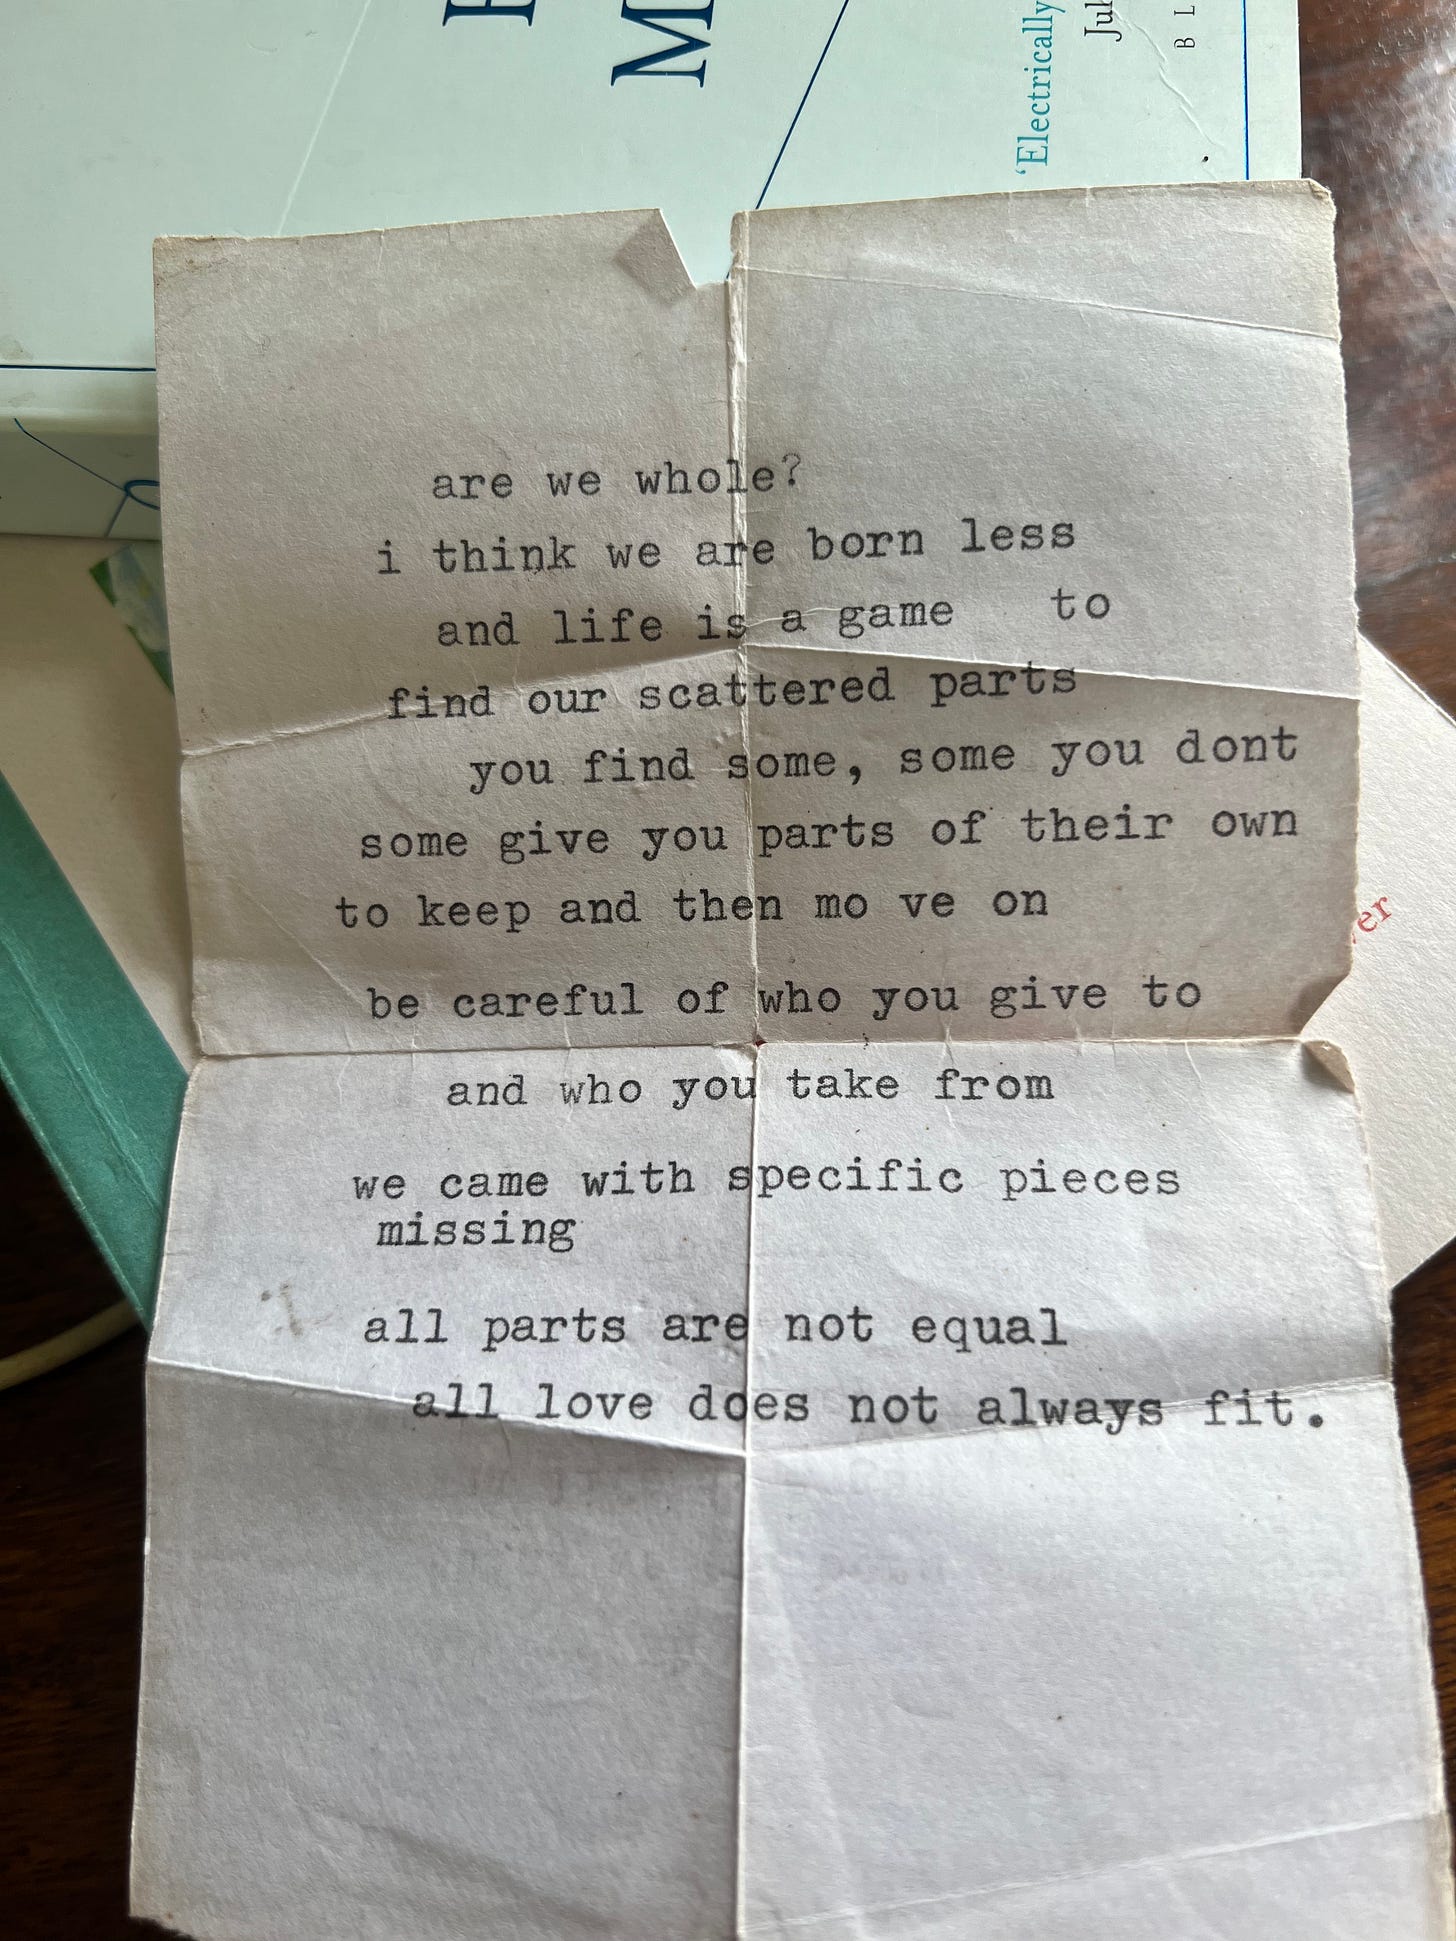 'Electrically
are we whole?
i think we are born less
and life is a game   to
find our scattered parts
you find some, some you dont
some give you parts of their own
to keep and then mo ve on
be careful of who you give to
and who you take from
we came with specific pieces
missing
all parts are not equal
all love does not always fit.